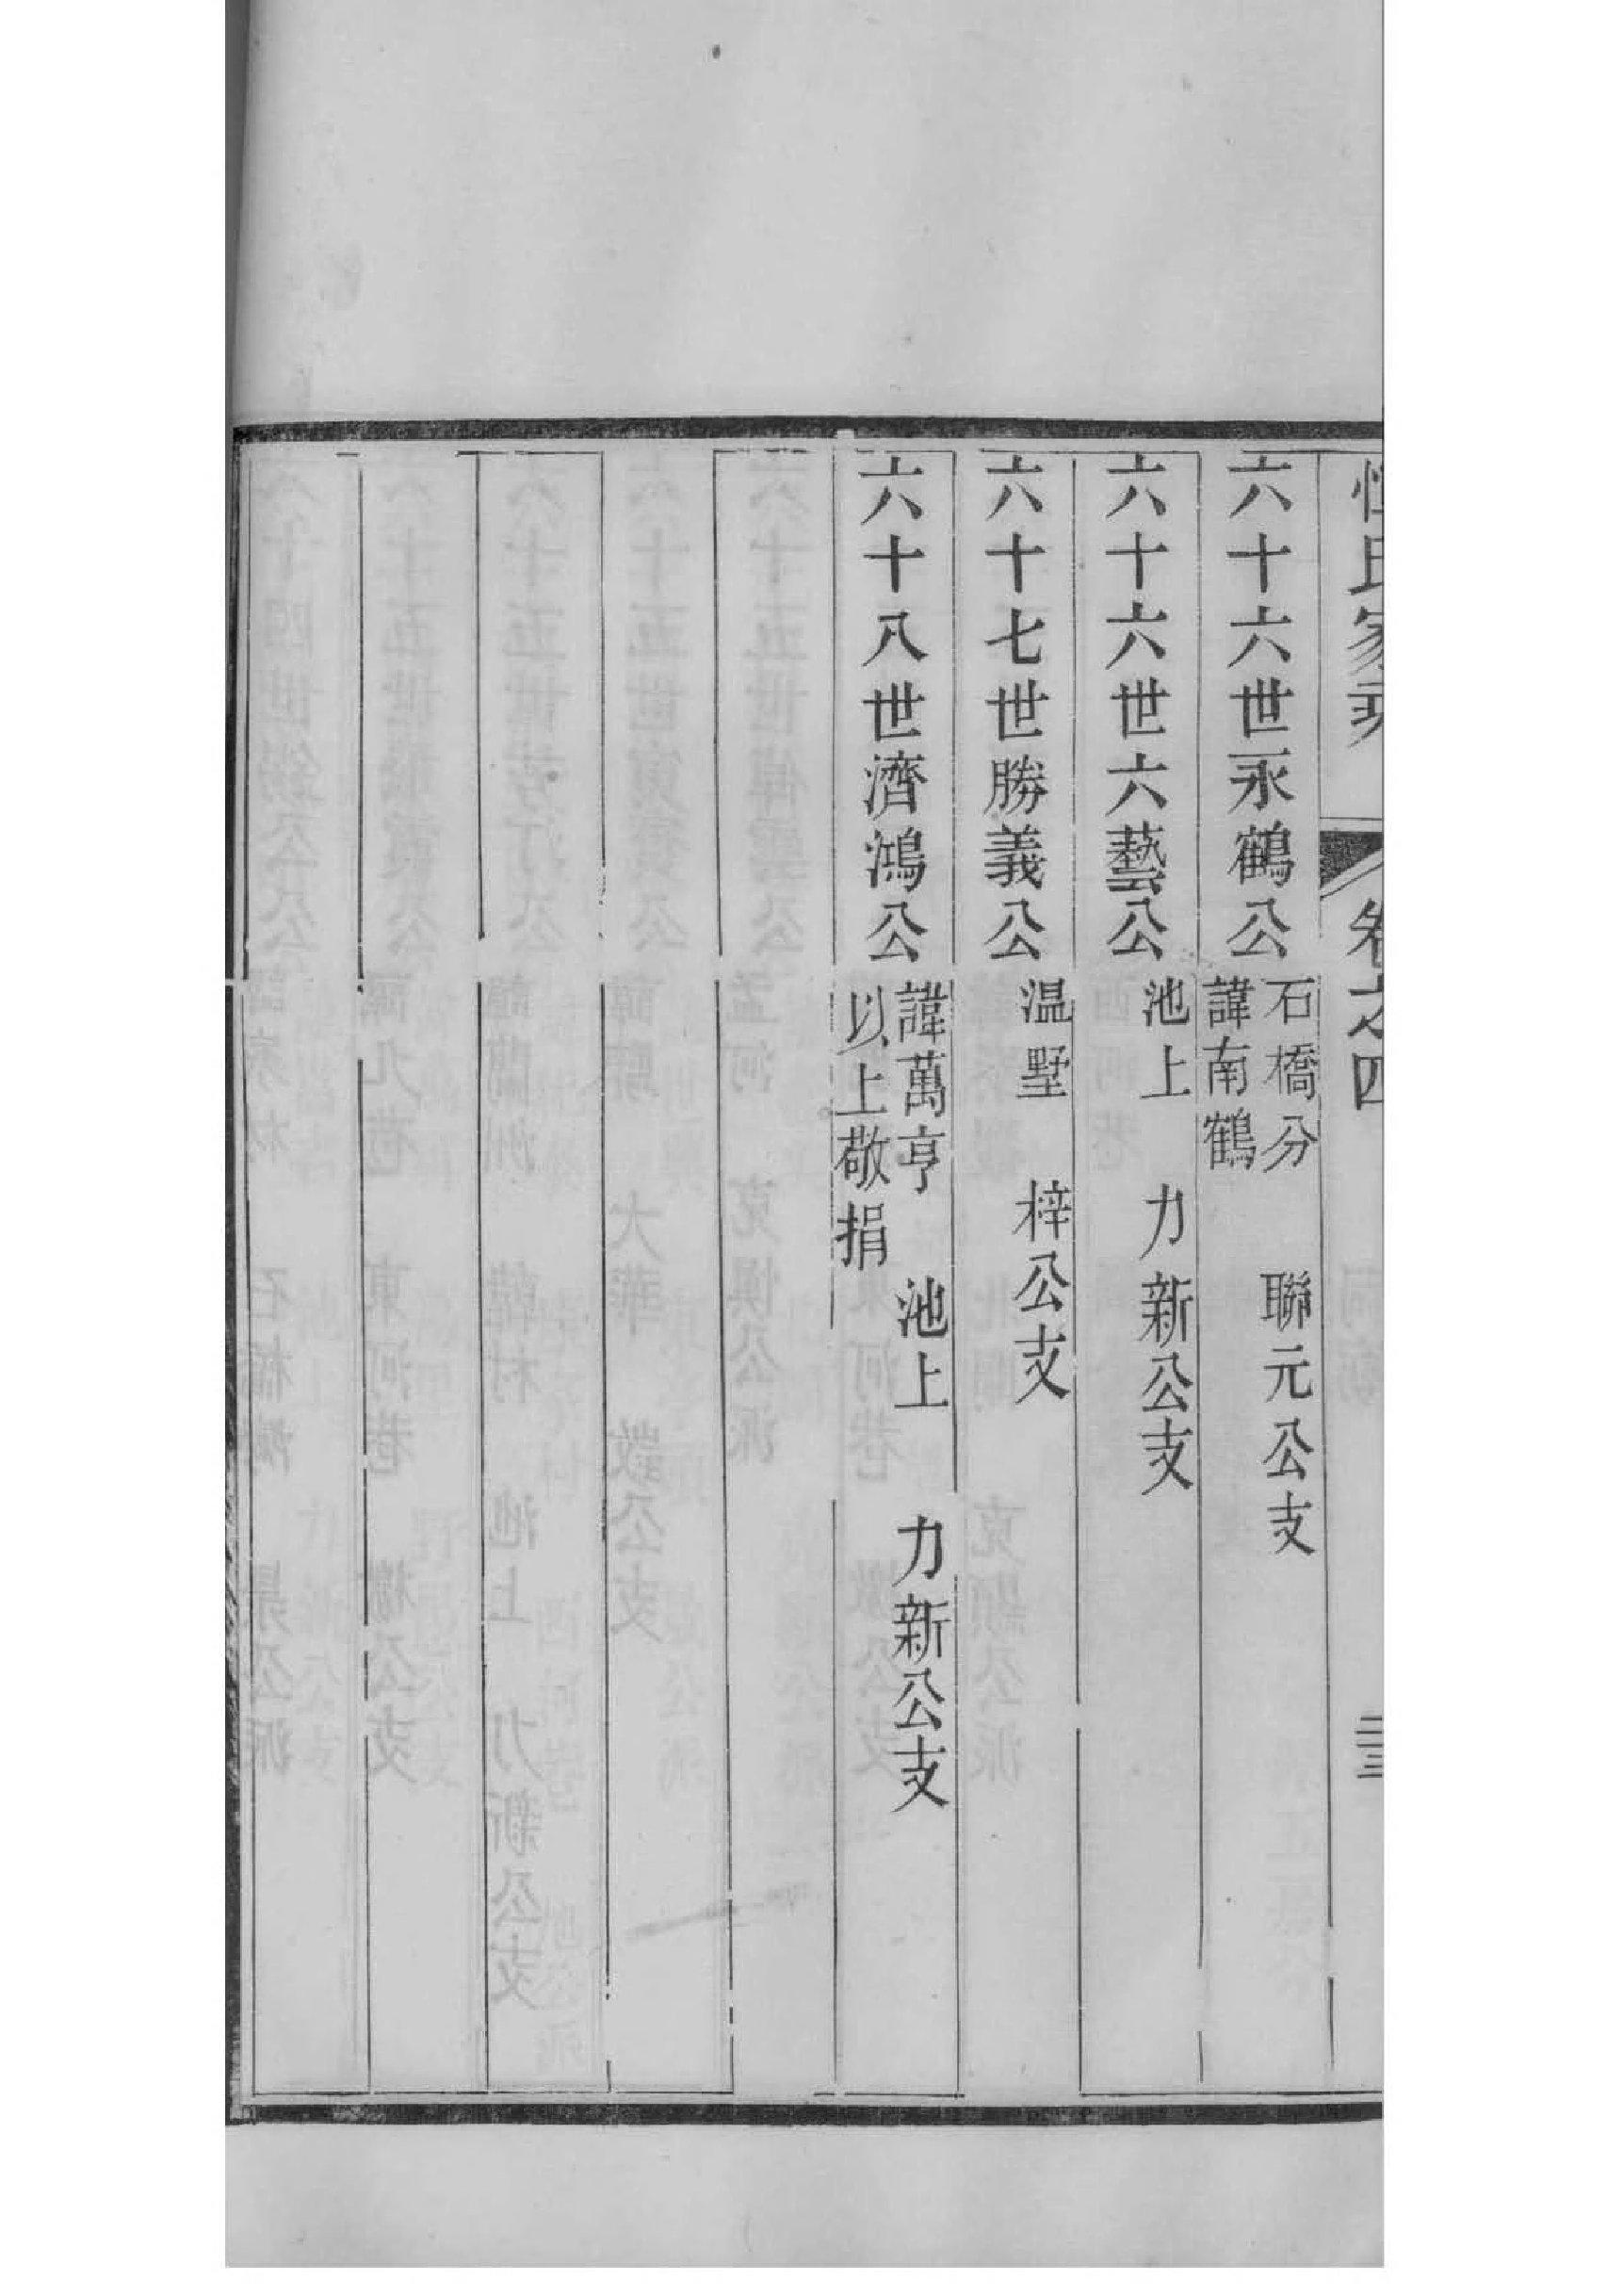 惲氏家乘　卷之四　二三
六十六世永鶴公
石橋分　聯元公支
諱南鶴
六十六世六藝公　池上　力新公支
六十七世勝義公　温墅　梓公支
六十八世濟鴻公
諱萬亨　池上　力新公支
以上敬捐